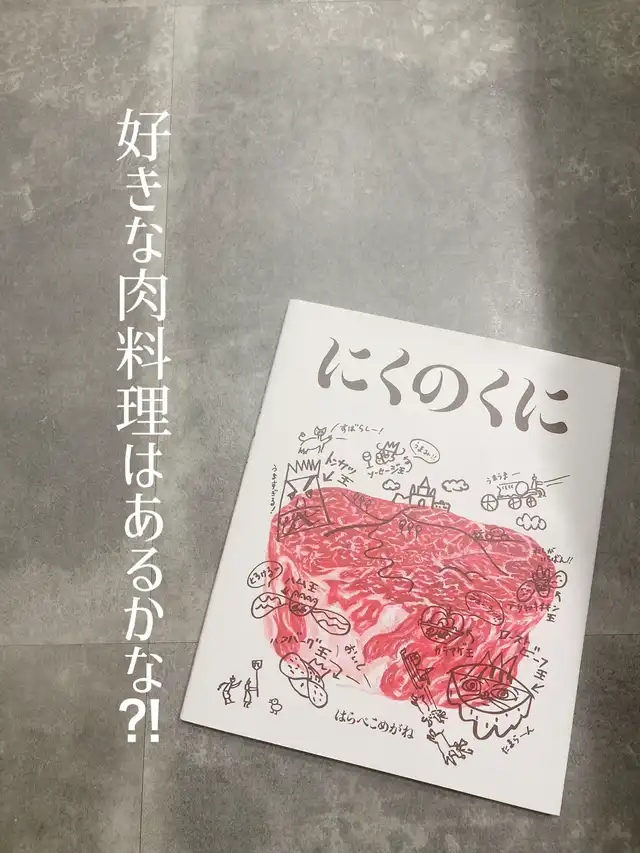 好きな肉料理はあるかな?!
にくのくに
すばらしー!
うまみ!!
ソーセージ王
トンカツ王
うますぎる!
うまうまー
とろける〜
ハム王
カラアゲ王
ロースト
ビーフ王
ハンバーグ王
おいしい
はらぺこめがね